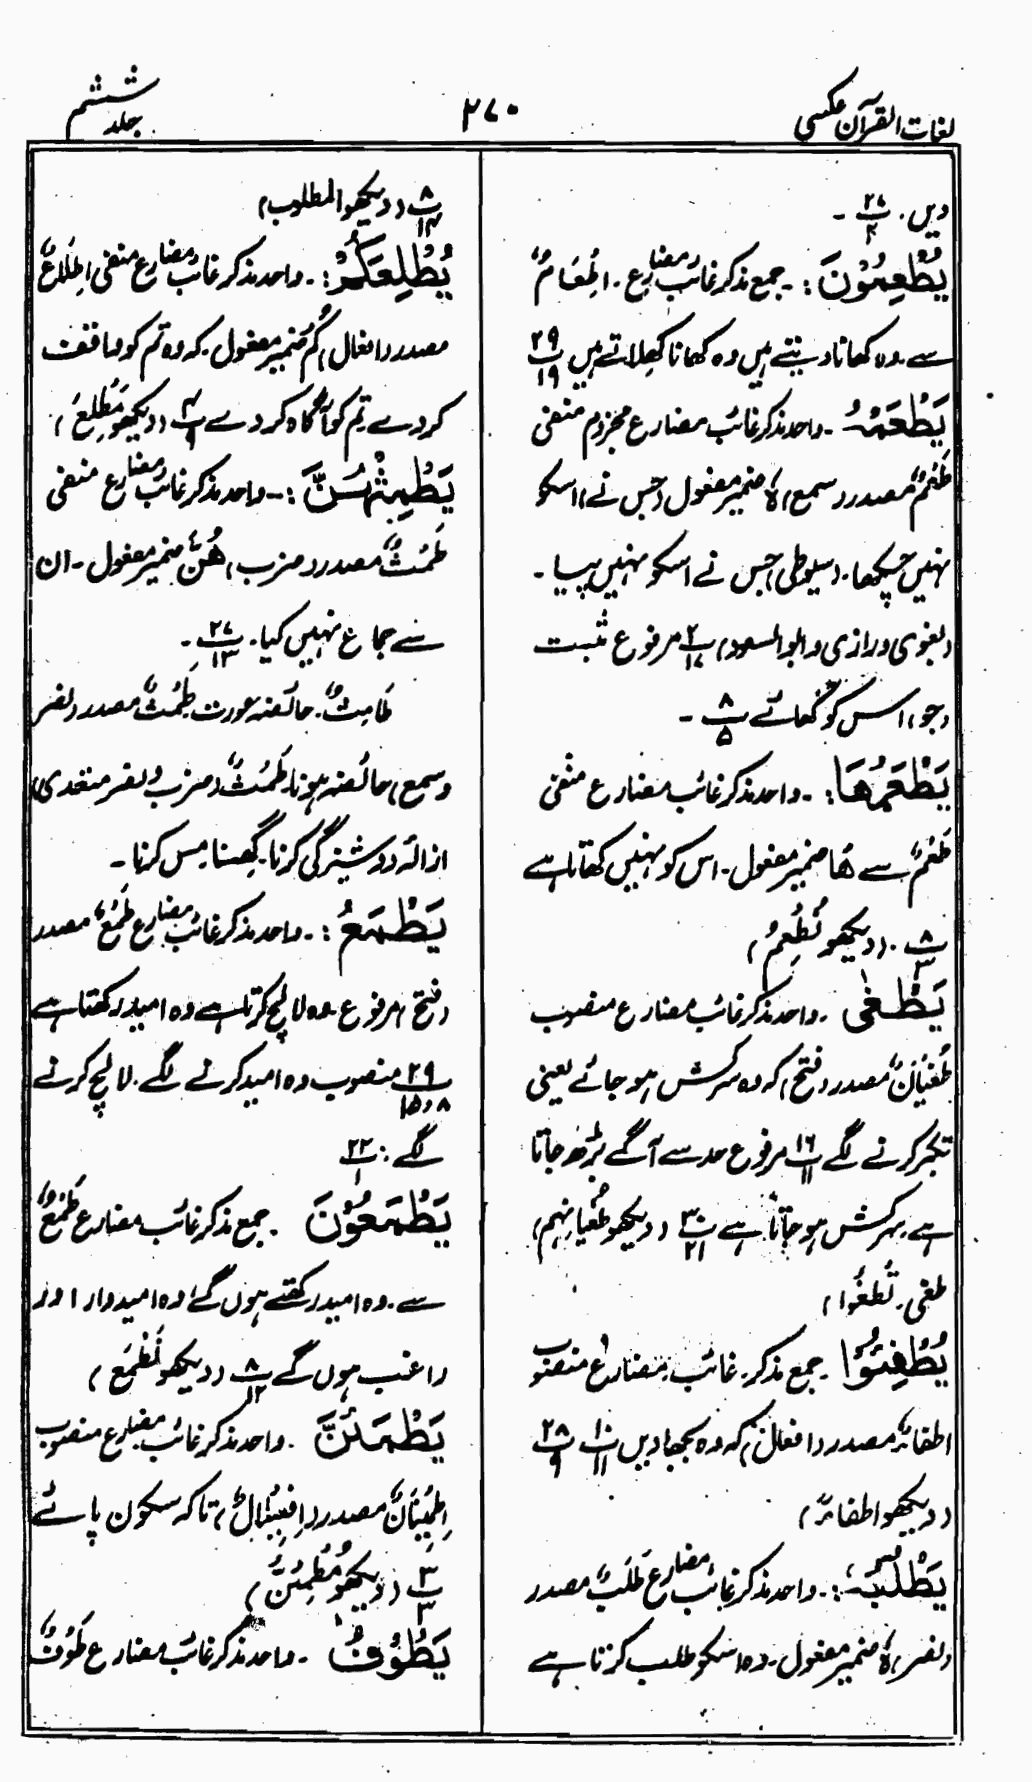 لغات القرآن عکسی
۲۷۰
جلد ششم
دیں. ۲۷/۲ ۔
يُطْعِمُوْنَ :۔ جمع مذکر غائب مضارع۔ اِطْعَامٌ
سے۔ وہ کھانا دیتے ہیں وہ کھانا کھلاتے ہیں ۲۹/۱۹
يَطْعَمْهُ ۔ واحد مذکر غائب مضارع مجزوم منفی
طَعْمٌ مصدر (سمع) ہٗ ضمیر مفعول (جس نے) اسکو
نہیں چکھا۔ (سیوطی) جس نے اسکو نہیں پیا ۔
(بغوی ورازی و ابوالسعود) ۲/۱۷ مرفوع مثبت
(جو) اس کو کھائے ۸/۵ ۔
يَطْعَمُهَا :۔ واحد مذکر غائب مضارع منفی
طَعْمٌ سے ھَا ضمیر مفعول ۔ اس کو نہیں کھاتا ہے
۸/۳ ۔ (دیکھو نُطْعِمُ)
يَطْغٰى ۔ واحد مذکر غائب مضارع منصوب
طُغْيَانٌ مصدر (فتح) کہ وہ سرکش ہو جائے یعنی
تکبر کرنے لگے ۱۶/۱۱ مرفوع حد سے آگے بڑھ جاتا
ہے سرکش ہو جاتا ہے ۳۰/۲۱ (دیکھو طُغْيَانِهِمْ)
طغی۔ تَطْغَوْا)
يُطْفِئُوْا ۔ جمع مذکر غائب مضارع منصوب
اطفاءٌ مصدر (افعال) کہ وہ بجھا دیں ۱۰/۱۱ ۲۸/۹
(دیکھو اطفاءٌ)
يَطْلُبُهٗ :۔ واحد مذکر غائب مضارع طَلَبٌ مصدر
(نصر) ہٗ ضمیر مفعول۔ وہ اسکو طلب کرتا ہے
۸/۱۴ (دیکھو المطلوب)
يُطْلِعَكُمْ :۔ واحد مذکر غائب مضارع منفی اِطْلَاعٌ
مصدر (افعال) كُمْ ضمیر مفعول۔ کہ وہ تم کو واقف
کر دے تم کو آگاہ کر دے ۴/۹ (دیکھو مُطَّلِعُ)
يَطْمِثْهُنَّ :۔ واحد مذکر غائب مضارع منفی
طَمْثٌ مصدر (ضرب) هُنَّ ضمیر مفعول۔ ان
سے جماع نہیں کیا ۔ ۲۷/۱۳ ۔
طَامِثٌ۔ حائضہ عورت۔ طَمْثٌ مصدر (نصر
وسمع) حائضہ ہونا۔ طَمْثٌ (ضرب و نصر متعدی)
ازالہ دوشیزگی کرنا۔ گھسنا۔ مس کرنا ۔
يَطْمَعُ :۔ واحد مذکر غائب مضارع طَمْعٌ مصدر
(فتح) مرفوع۔ وہ لالچ کرتا ہے وہ امید رکھتا ہے
۲۹/۸،۱۵ منصوب وہ امید کرنے لگے۔ لالچ کرنے
لگے : ۲۲/۱
يَطْمَعُوْنَ ۔ جمع مذکر غائب مضارع طَمْعٌ
سے ۔ وہ امید رکھتے ہوں گے وہ امیدوار اور
راغب ہوں گے ۸/۱۲ (دیکھو نَطْمَعُ)
يَطْمَئِنَّ ۔ واحد مذکر غائب مضارع منصوب
اِطْمِيْنَانٌ مصدر (اِفْعِيْلَالٌ) تاکہ سکون پائے
۳/۳ (دیکھو مُطْمَئِنٌّ)
يَطُوْفُ ۔ واحد مذکر غائب مضارع طَوْفٌ